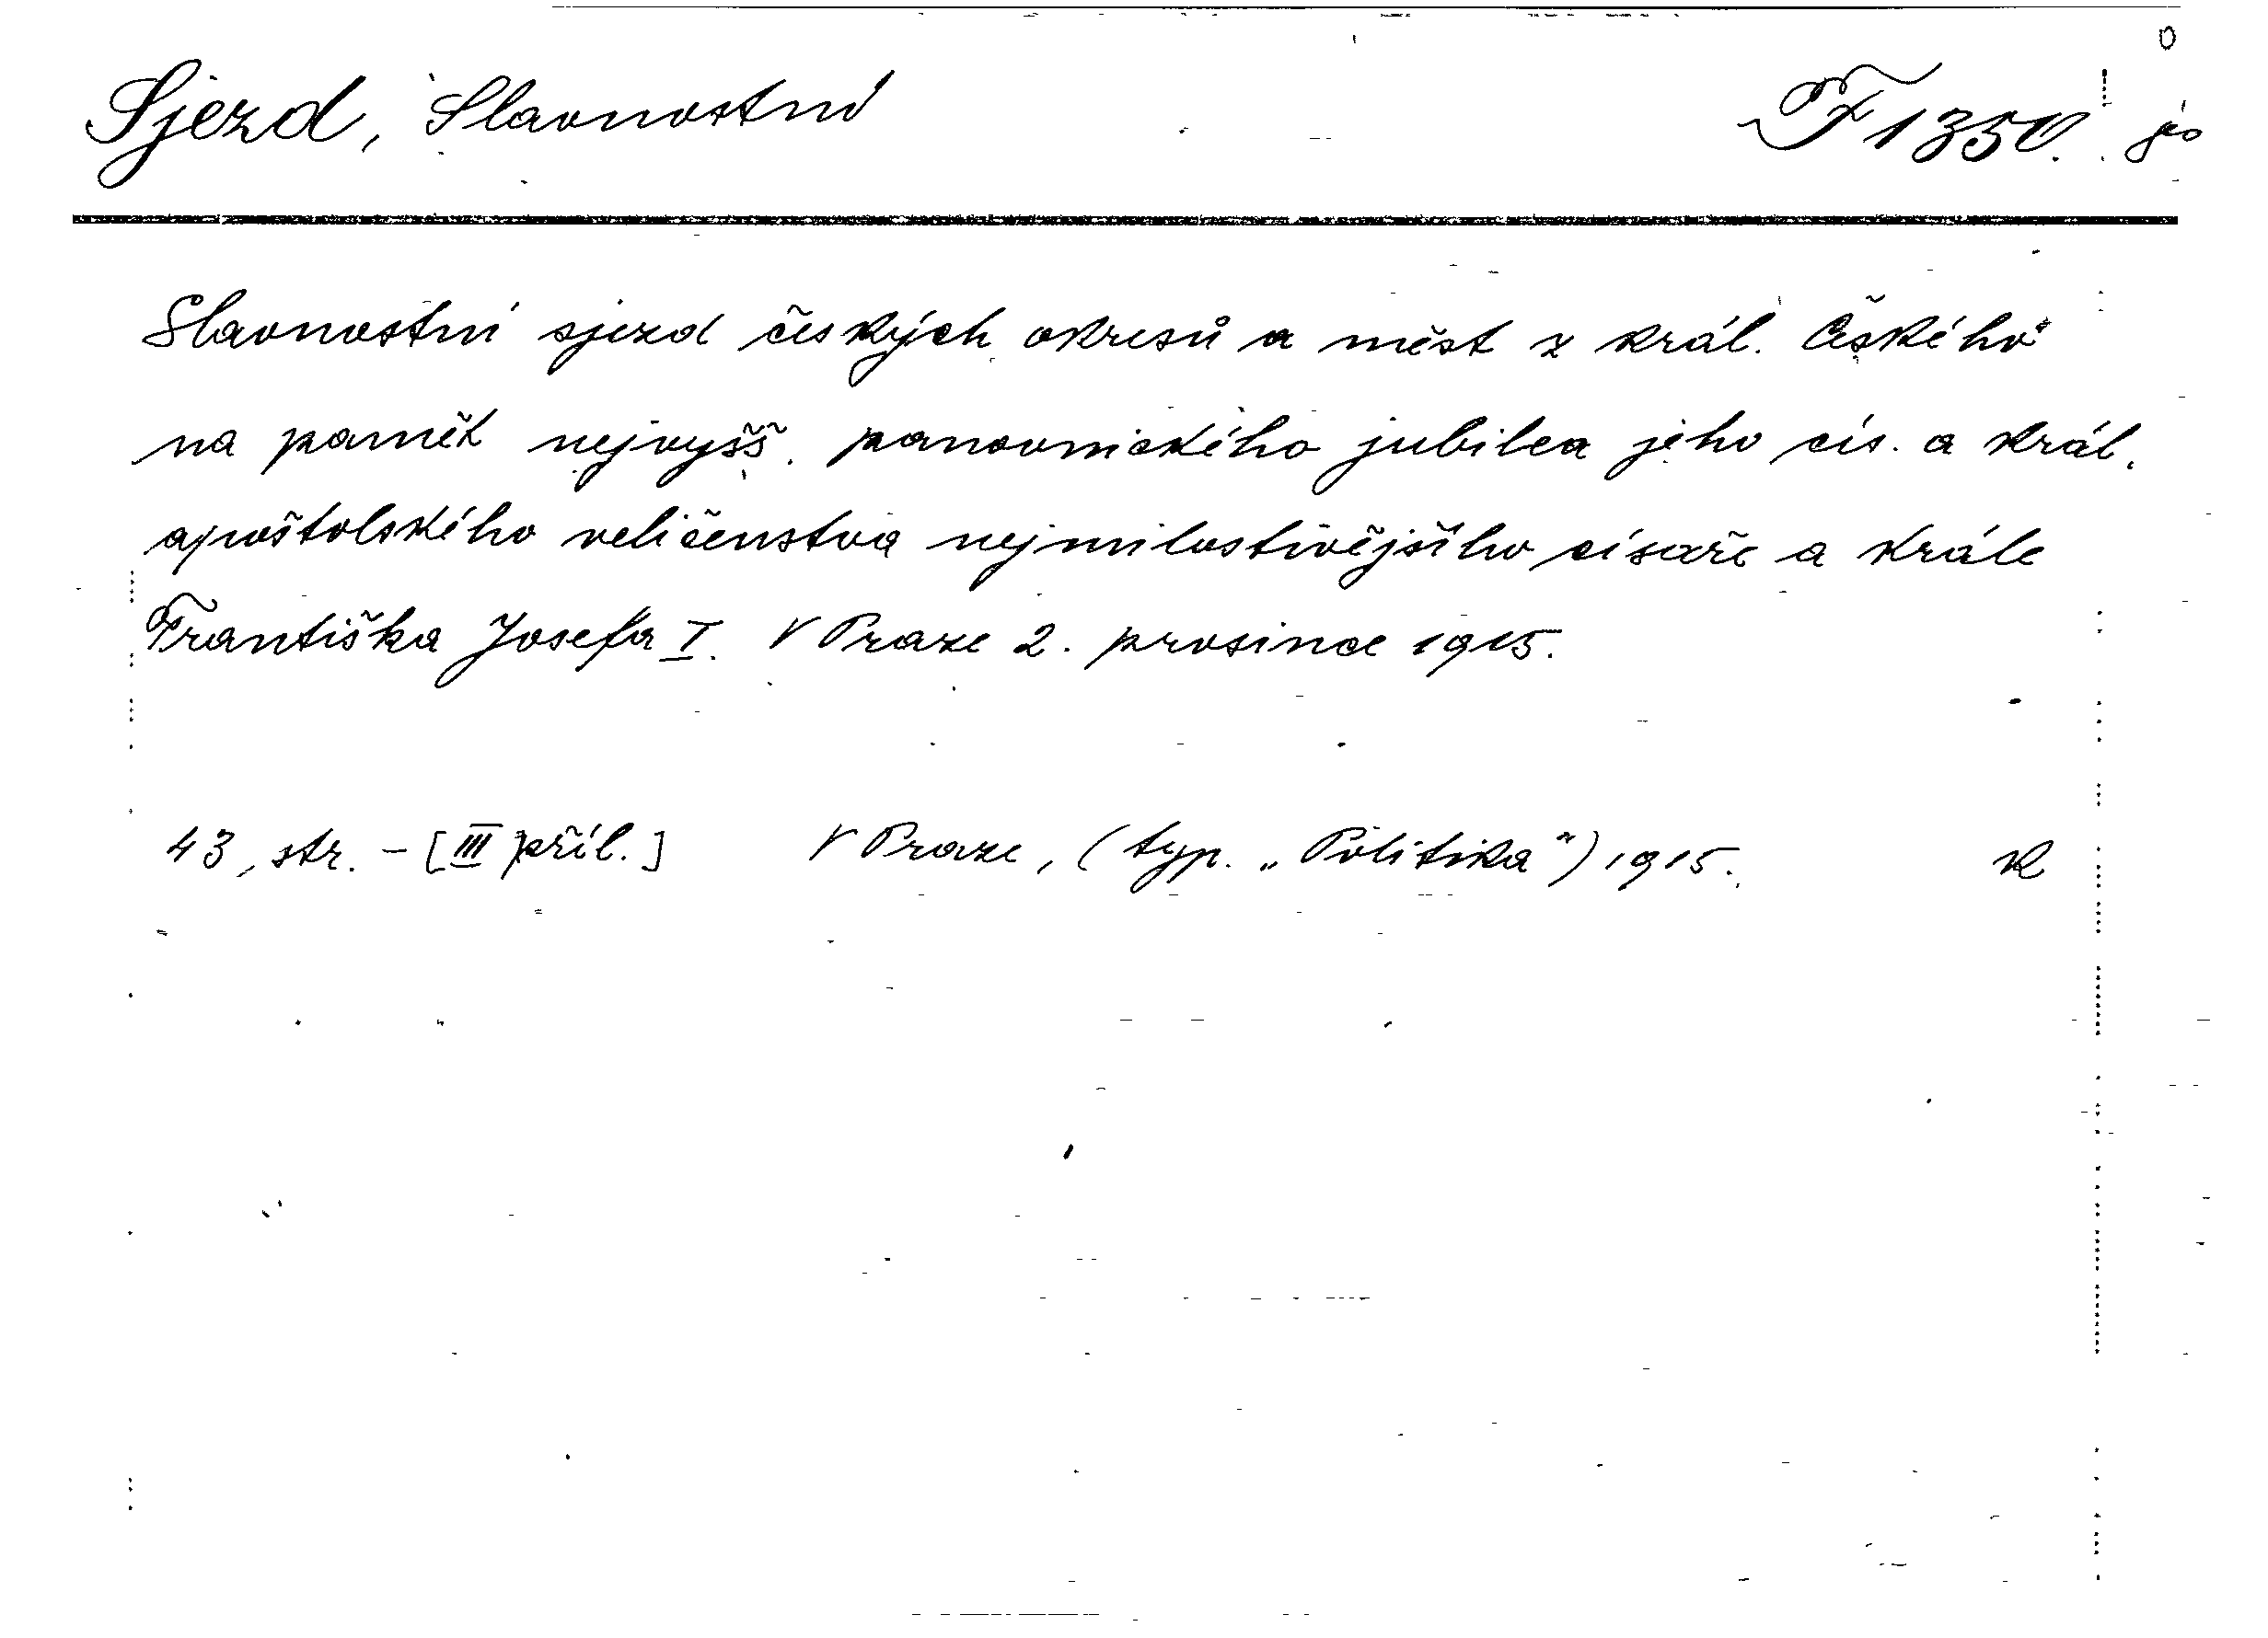 Sjezd, Slavnostní F 1350.
Slavnostní sjezd českých okresů a měst z král. Českého
na paměť nejvyšš. panovnického jubilea jeho cís. a král.
apoštolského veličenstva nejmilostivějšího císaře a krále
Františka Josefa I. V Praze 2. prosince 1915.
43, str. – [III příl.] V Praze, (typ. „Politika") 1915. K